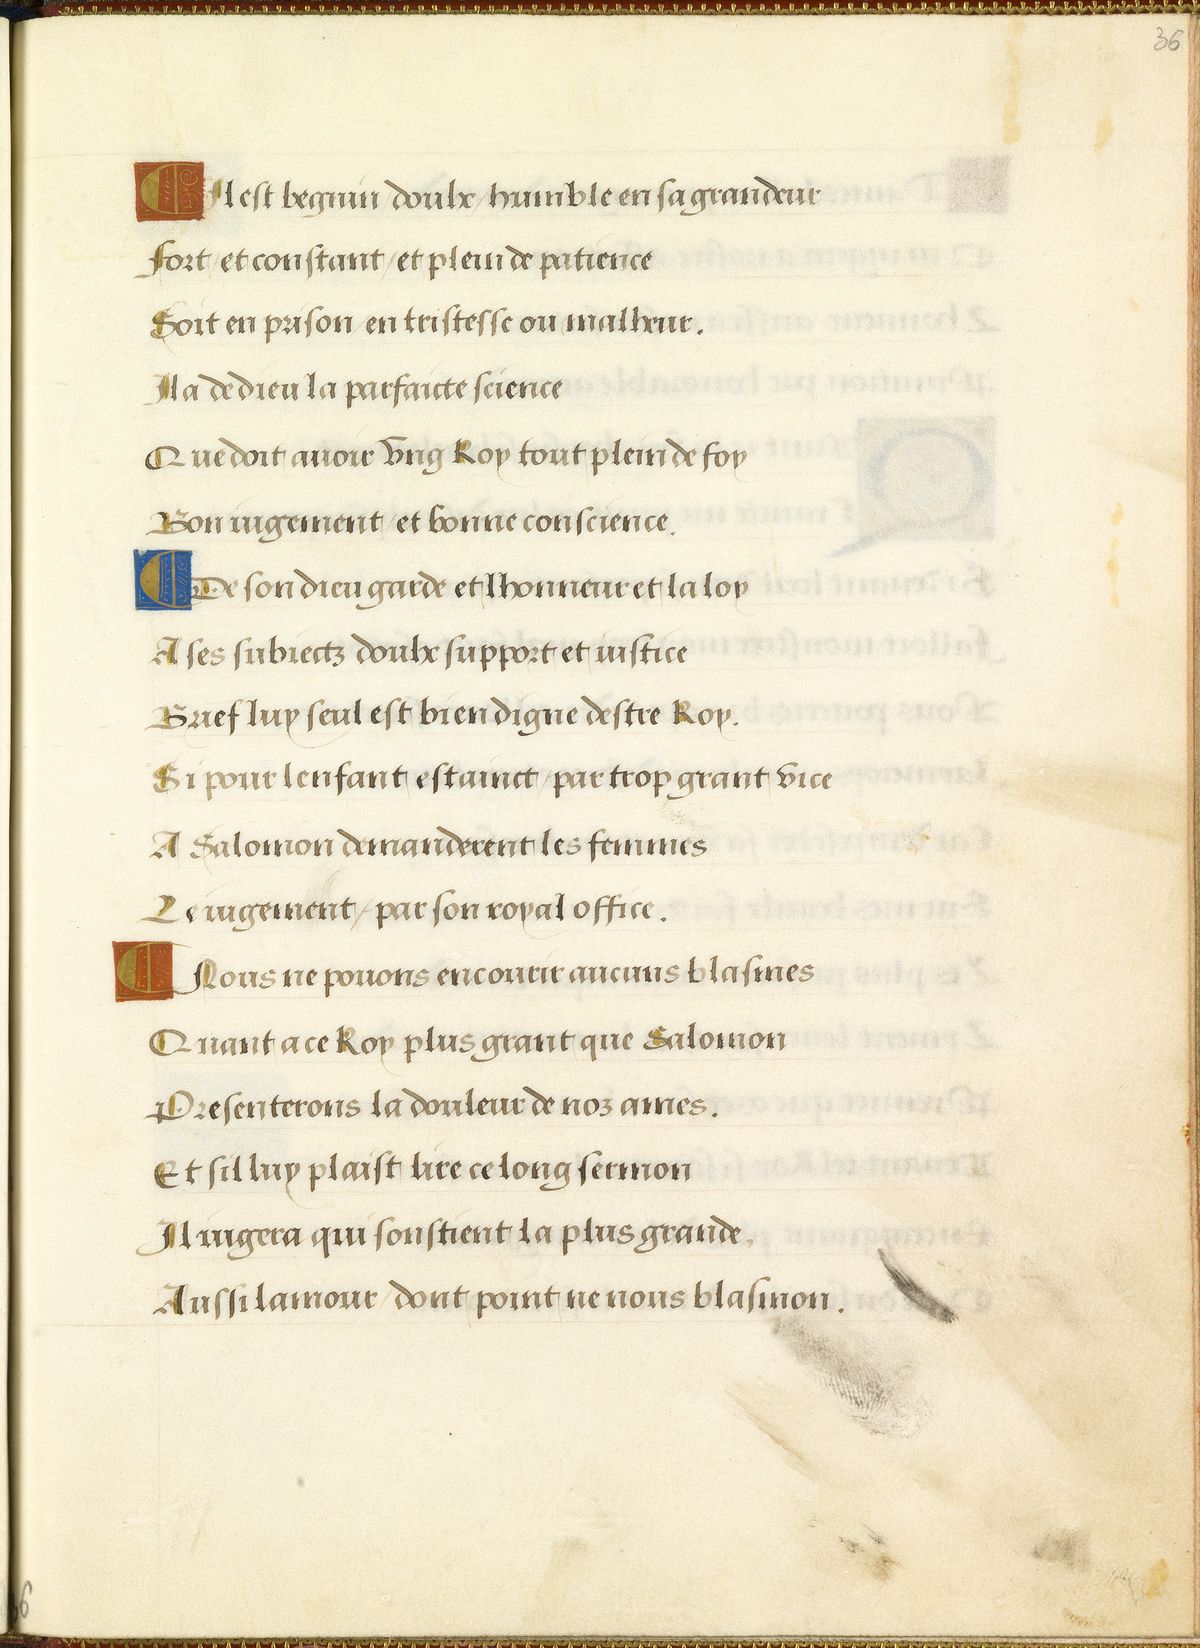 36
Il est beguin doulx / humble en sa grandeur
fort / et constant / et plein de patience
Soit en prison / en tristesse ou malheur.
Il a de dieu la parfaicte science
Que doit auoir vng Roy tout plein de foy
Bon iugement / et bonne conscience.
De son dieu garde et lhonneur et la loy
A ses subiectz doulx support et iustice
Brief luy seul est bien digne destre Roy.
Si pour lenfant estainct / par trop grant vice
A Salomon demanderent les femmes
Le iugement / par son royal office.
Nous ne pouons encourir aucuns blasmes
Quant a ce Roy plus grant que Salomon
Presenterons la douleur de noz ames.
Et sil luy plaist lire ce long sermon
Il iugera qui soustient la plus grande.
Aussi lamour / dont point ne nous blasmon.